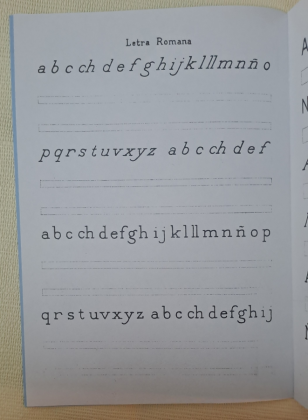 Letra Romana
a b c ch d e f g h i j k l ll m n ñ o
p q r s t u v x y z a b c ch d e f
a b c ch d e f g h i j k l ll m n ñ o p
q r s t u v x y z a b c ch d e f g h i j